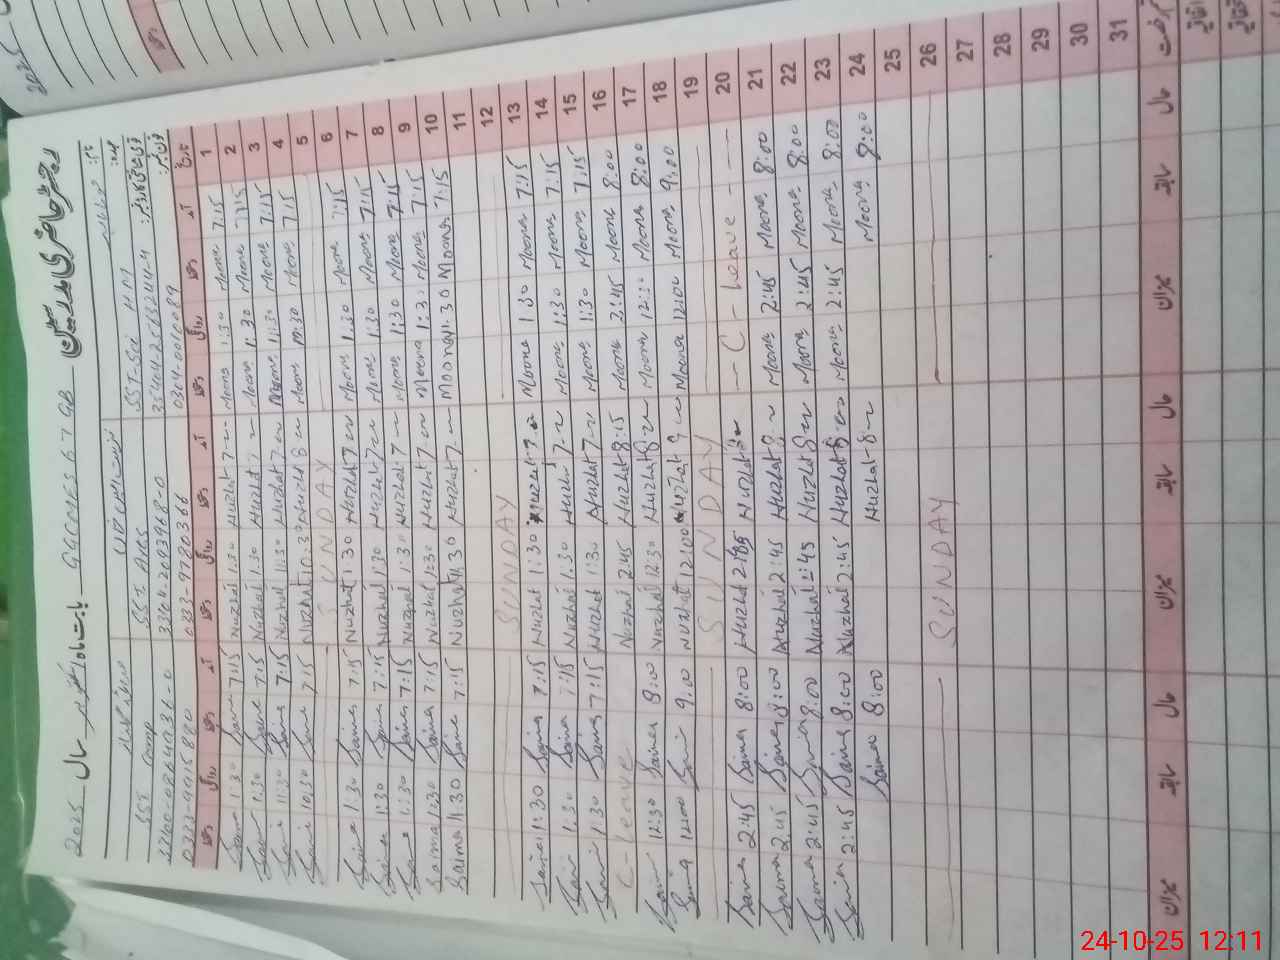 رجسٹر حاضری مدرسین
G.G.C.M.E.S 67 GB بابت ماہ اکتوبر سال 2025
SST-Sci
SST Arts
SST Comp
33104-2039468-0
0304-0010089
0333-9780366
تاریخ آمد دستخط روانگی دستخط آمد دستخط روانگی دستخط آمد دستخط روانگی دستخط
1 7:15 Moona 1:30 Moona 7 Nuzhat 1:30 Nuzhat 7:15 Saima 1:30 Saima
2 7:15 Moona 1:30 Moona 7 Nuzhat 1:30 Nuzhat 7:15 Saima 1:30 Saima
3 7:15 Moona 11:30 Moona 7 Nuzhat 11:30 Nuzhat 7:15 Saima 11:30 Saima
4 7:15 Moona 10:30 Moona 8 Nuzhat 10:30 Nuzhat 7:15 Saima 10:30 Saima
5 SUNDAY
6 7:15 Moona 1:30 Moona 7 Nuzhat 1:30 Nuzhat 7:15 Saima 1:30 Saima
7 7:15 Moona 1:30 Moona 7 Nuzhat 1:30 Nuzhat 7:15 Saima 1:30 Saima
8 7:15 Moona 1:30 Moona 7 Nuzhat 1:30 Nuzhat 7:15 Saima 1:30 Saima
9 7:15 Moona 1:30 Moona 7 Nuzhat 1:30 Nuzhat 7:15 Saima 1:30 Saima
10 7:15 Moona 11:30 Moona 7 Nuzhat 11:30 Nuzhat 7:15 Saima 11:30 Saima
11
12 SUNDAY
13 7:15 Moona 1:30 Moona 7 Nuzhat 1:30 Nuzhat 7:15 Saima 1:30 Saima
14 7:15 Moona 1:30 Moona 7 Nuzhat 1:30 Nuzhat 7:15 Saima 1:30 Saima
15 7:15 Moona 1:30 Moona 7 Nuzhat 1:30 Nuzhat 7:15 Saima 1:30 Saima
16 8:00 Moona 2:45 Moona 8:15 Nuzhat 2:45 Nuzhat C-leave
17 8:00 Moona 12:30 Moona 8 Nuzhat 12:30 Nuzhat 8:00 Saima 12:30 Saima
18 9:00 Moona 12:00 Moona 9 Nuzhat 12:00 Nuzhat 9:00 Saima 12:00 Saima
19 SUNDAY
20 C-leave 8 Nuzhat 2:45 Nuzhat 8:00 Saima 2:45 Saima
21 8:00 Moona 2:45 Moona 8 Nuzhat 2:45 Nuzhat 8:00 Saima 2:45 Saima
22 8:00 Moona 2:45 Moona 8 Nuzhat 2:45 Nuzhat 8:00 Saima 2:45 Saima
23 8:00 Moona 2:45 Moona 8 Nuzhat 2:45 Nuzhat 8:00 Saima 2:45 Saima
24 8:00 Moona 8 Nuzhat 8:00 Saima
25
26 SUNDAY
27
28
29
30
31
حال سابقہ میزان حال سابقہ میزان حال سابقہ میزان
24-10-25 12:11